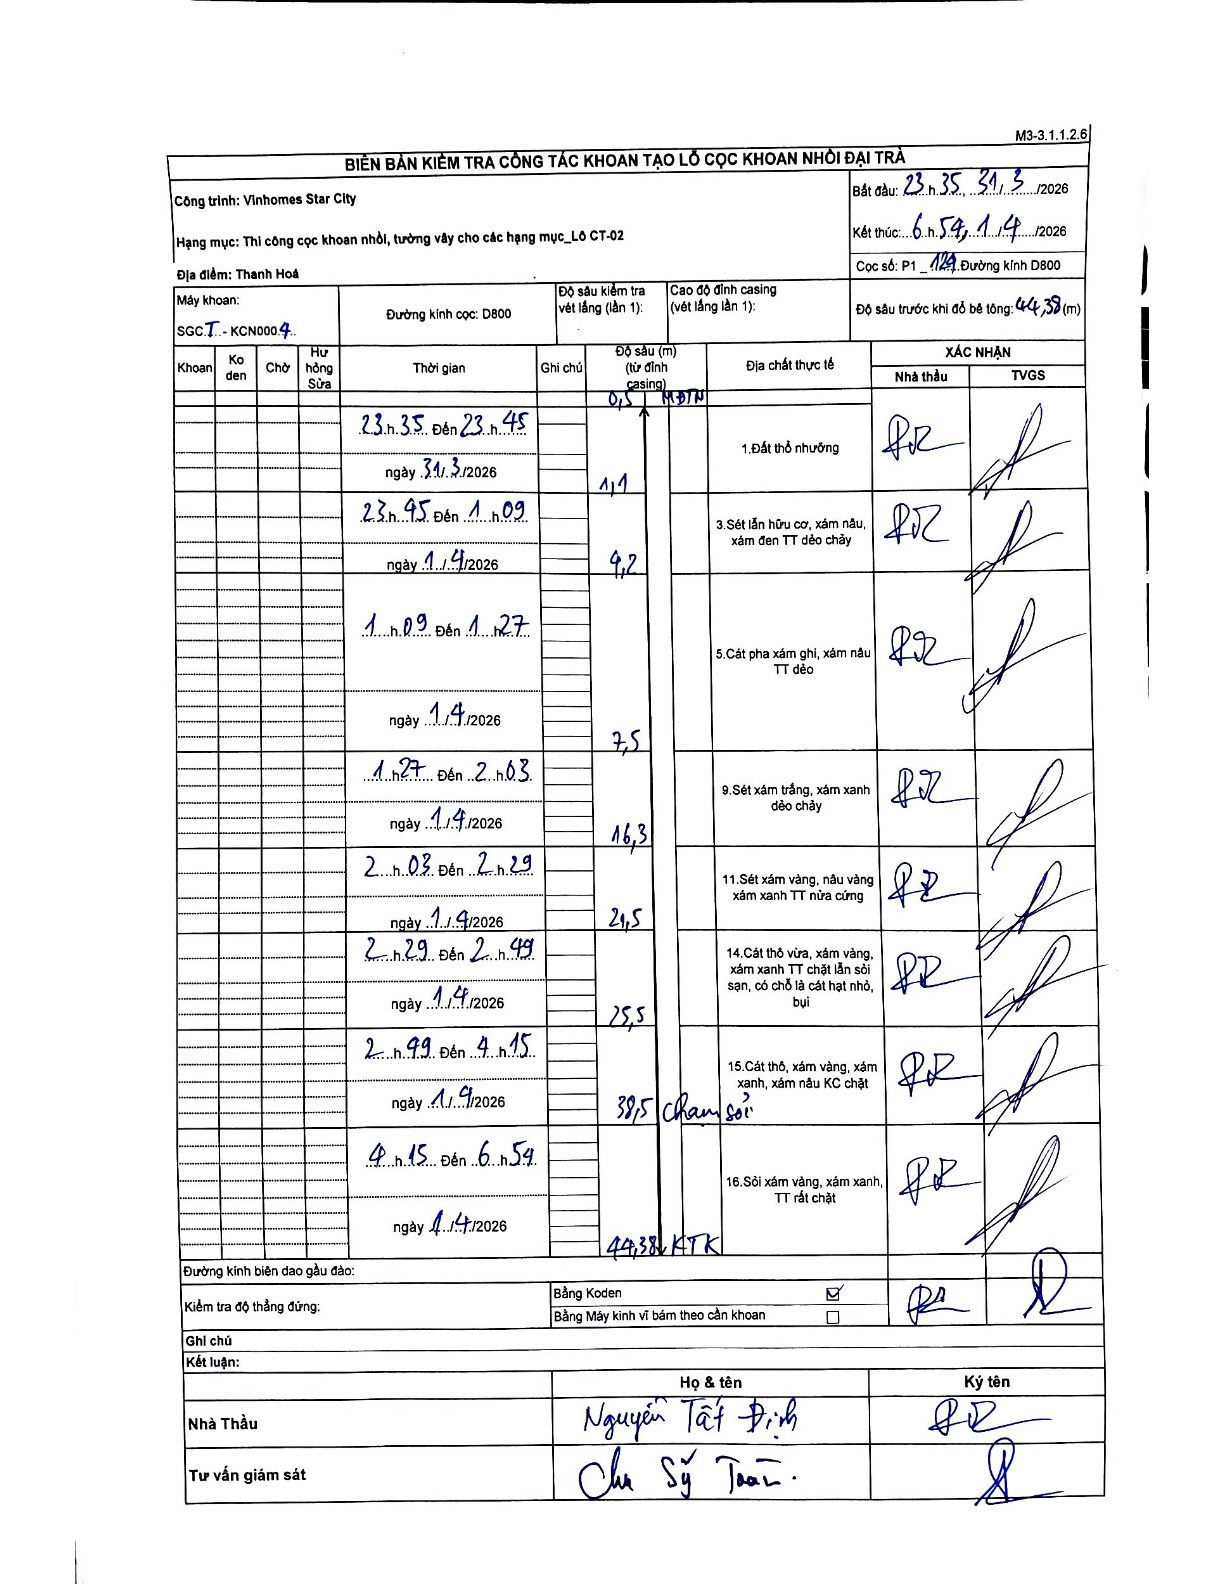 M3-3.1.1.2.6
BIÊN BẢN KIỂM TRA CÔNG TÁC KHOAN TẠO LỖ CỌC KHOAN NHỒI ĐẠI TRÀ
Công trình: Vinhomes Star City
Bắt đầu: 23.h.35, 31/.3./2026
Hạng mục: Thi công cọc khoan nhồi, tường vây cho các hạng mục_Lô CT-02
Kết thúc:..6.h.54, 1./.4./2026
Địa điểm: Thanh Hoá
Cọc số: P1_129.Đường kính D800
Máy khoan:
SGC.T.. - KCN000.4..
Đường kính cọc: D800
Độ sâu kiểm tra
vét lắng (lần 1):
Cao độ đỉnh casing
(vét lắng lần 1):
Độ sâu trước khi đổ bê tông: 44,38 (m)
Khoan
Ko
den
Chờ
Hư
hỏng
Sửa
Thời gian
Ghi chú
Độ sâu (m)
(từ đỉnh
casing)
Địa chất thực tế
XÁC NHẬN
Nhà thầu
TVGS
0,5 MĐTN
23.h.35. Đến 23..h.45
ngày .31/.3./2026
1,1
1.Đất thổ nhưỡng
23.h..45 Đến ..1..h.09
ngày .1../.4/2026
4,2
3.Sét lẫn hữu cơ, xám nâu,
xám đen TT dẻo chảy
1....h.09. Đến .1...h27
ngày ..1./.4./2026
7,5
5.Cát pha xám ghi, xám nâu
TT dẻo
..1..h27... Đến ..2..h.03.
ngày ..1/.4./2026
16,3
9.Sét xám trắng, xám xanh
dẻo chảy
2...h.03. Đến ..2.h.29
ngày ..1./..4/2026
21,5
11.Sét xám vàng, nâu vàng
xám xanh TT nửa cứng
2..h.29.. Đến .2..h.49
ngày ..1/.4./2026
25,5
14.Cát thô vừa, xám vàng,
xám xanh TT chặt lẫn sỏi
sạn, có chỗ là cát hạt nhỏ,
bụi
2...h.49. Đến ..4.h.15..
ngày ..1/..4./2026
38,5 chạm sỏi
15.Cát thô, xám vàng, xám
xanh, xám nâu KC chặt
4..h.15... Đến ..6..h54.
ngày ..1./.4./2026
44,38 KTK
16.Sỏi xám vàng, xám xanh,
TT rất chặt
Đường kính biên dao gầu đào:
Kiểm tra độ thẳng đứng:
Bằng Koden ☑
Bằng Máy kinh vĩ bám theo cần khoan ☐
Ghi chú
Kết luận:
Họ & tên
Ký tên
Nhà Thầu
Nguyễn Tất Định
Tư vấn giám sát
Chu Sỹ Toàn.